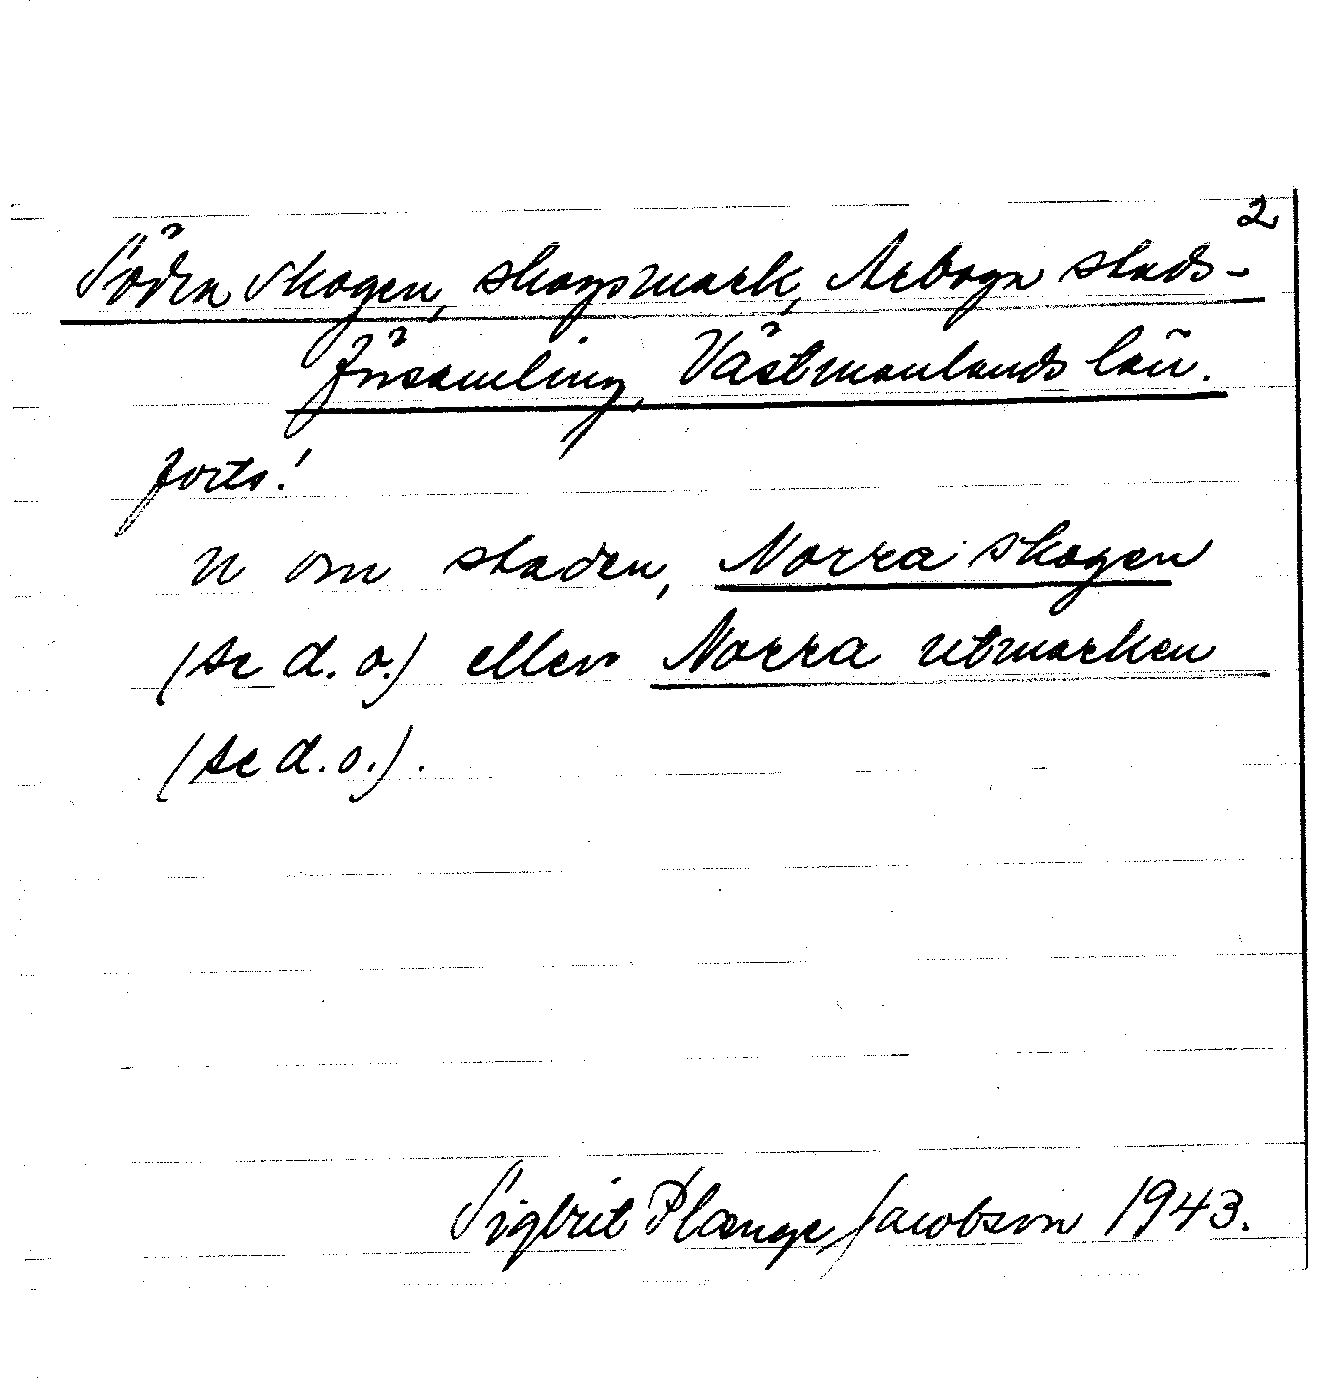 2
Södra skogen, skogsmark, Arboga stads-
församling, Västmanlands län.
forts!
N om staden, Norra skogen
(se d. o.) eller Norra utmarken
(se d.o.).
Sigbrit Plænge Jacobson 1943.